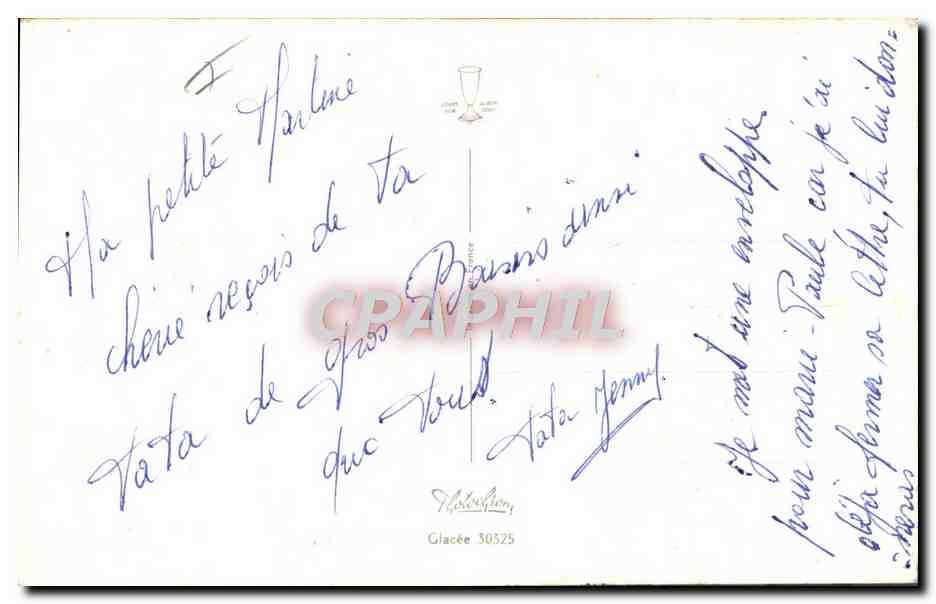 Ma petite Martine
chérie reçois de ta
tata de gros Baisers dinsi
que tous.
tata Jenny.
Je met une enveloppe
pour marie-Paule car je ai
déja fermer sa lettre, tu lui don=
=neras
en France
CRAPHIL
Photochrom
Glacée 30325